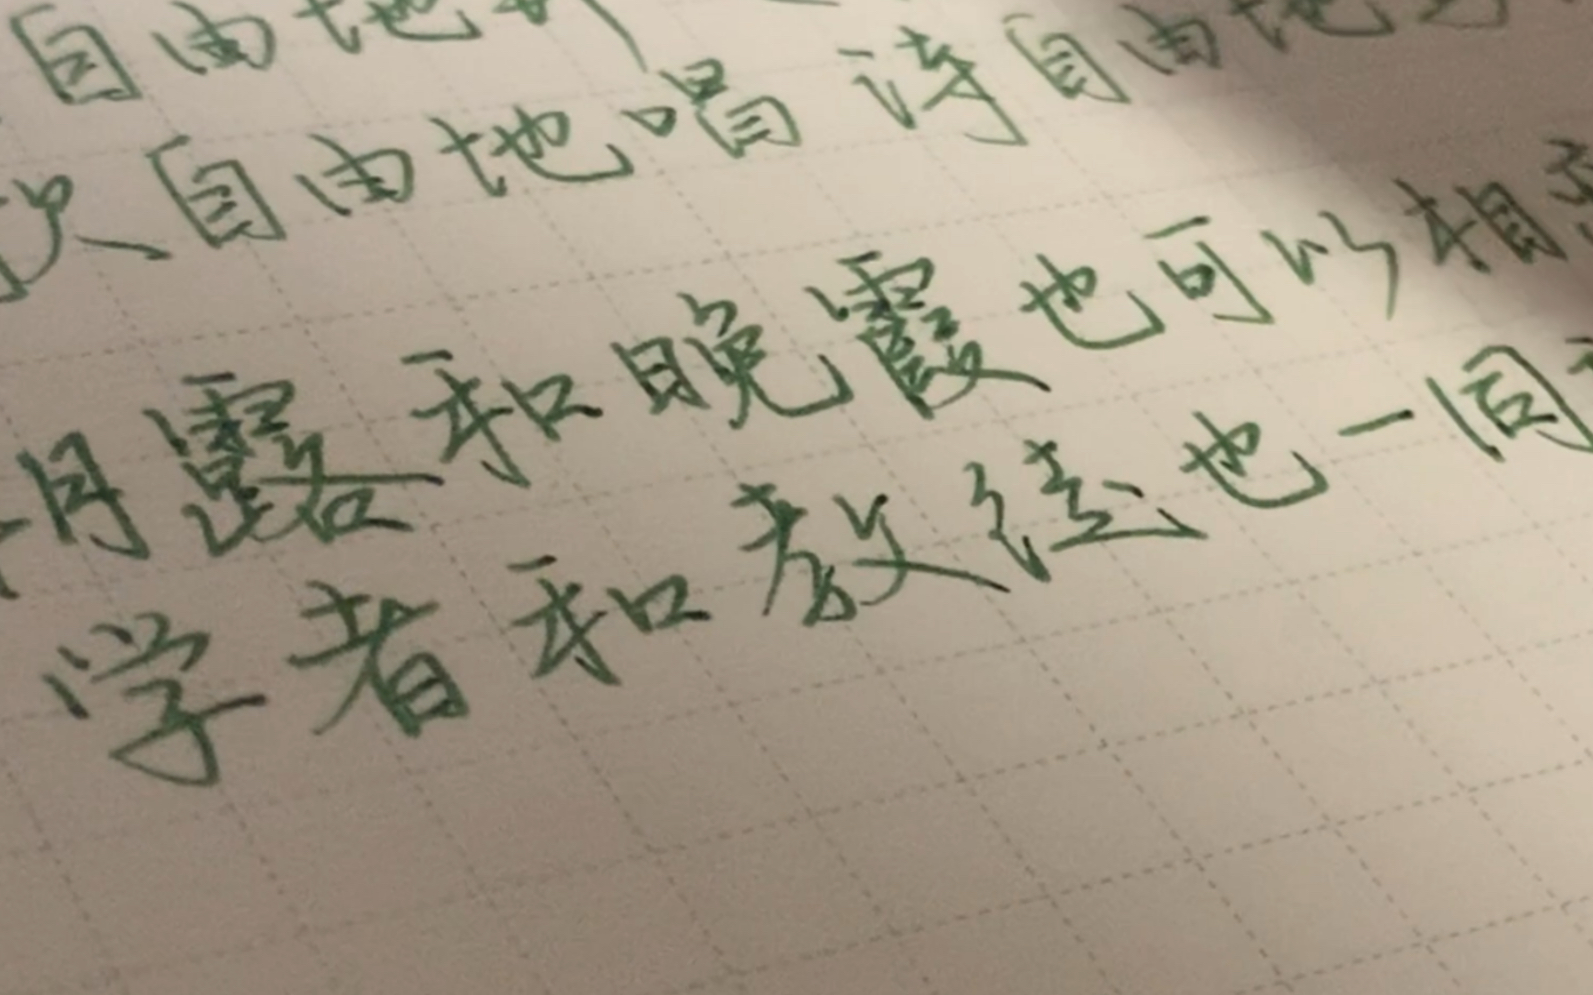 自由地
自由地唱 诗自由地
露和晚霞也可以相
学者和教徒也一同